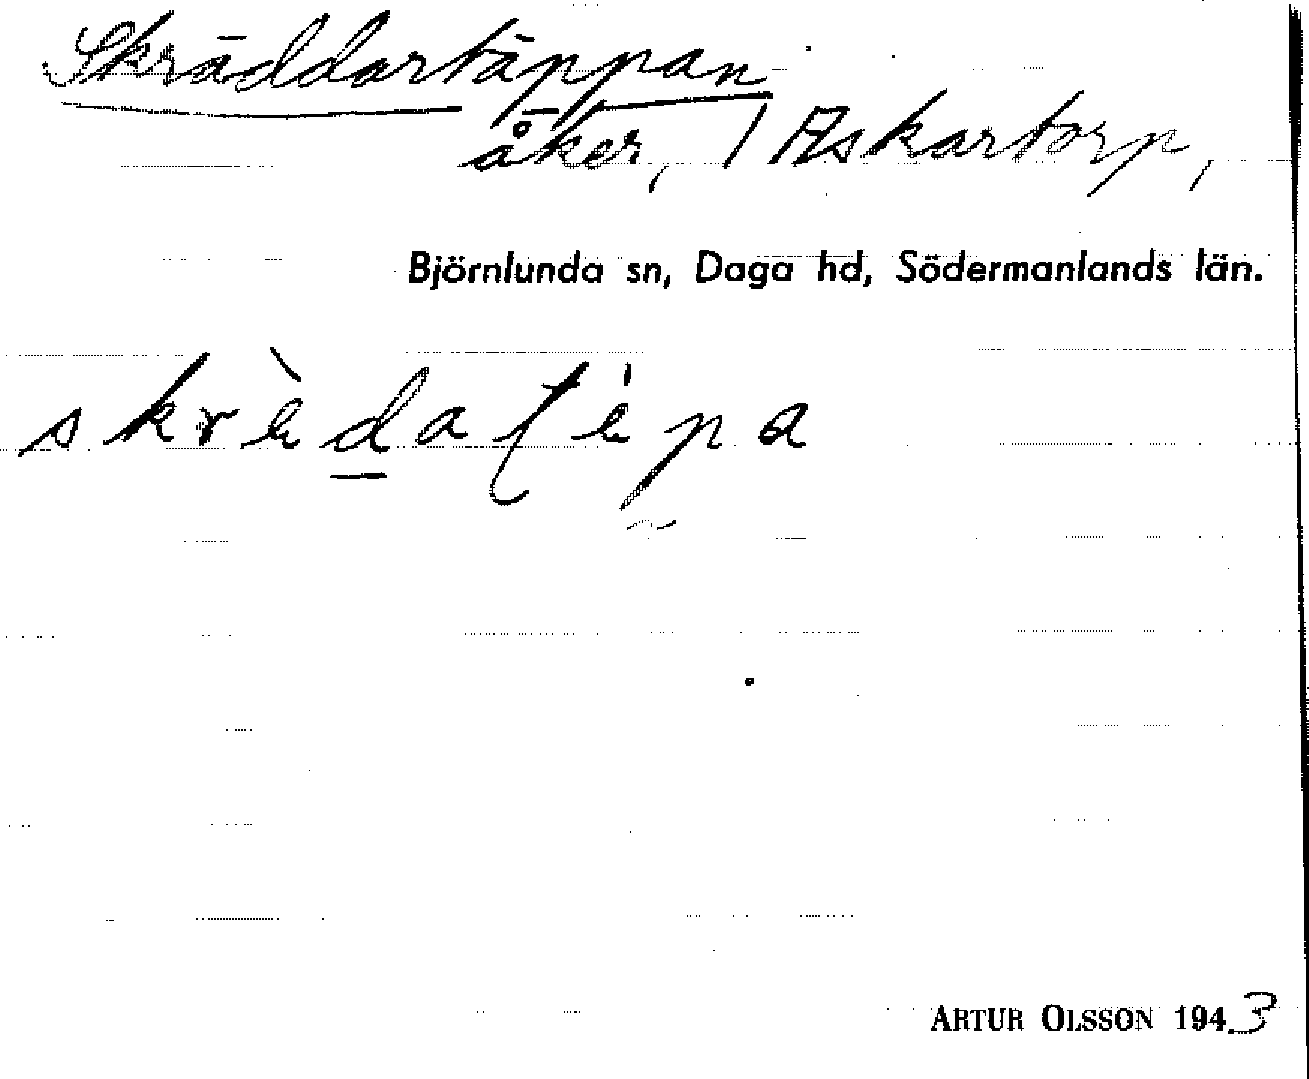 Skräddartäppan
åker, 1 Askartorp,
Björnlunda sn, Daga hd, Södermanlands län.
skrædaʈæpa
ARTUR OLSSON 1943